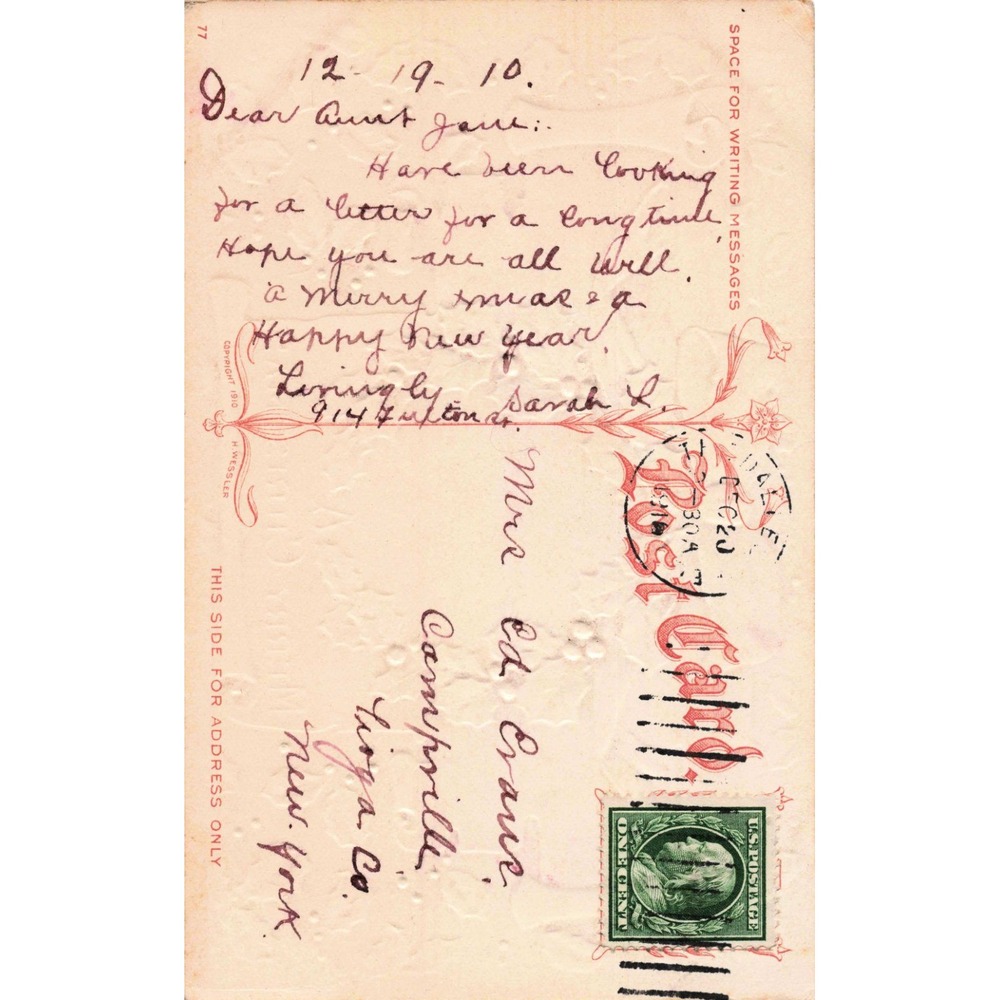 77
SPACE FOR WRITING MESSAGES
12-19-10.
Dear Aunt Jane:
Have been looking
for a letter for a long time
Hope you are all well.
a Merry xmas & a
Happy New Year.
Lovingly Sarah L.
914 Fulton St.
COPYRIGHT 1910 H. WESSLER
THIS SIDE FOR ADDRESS ONLY
Post Card.
DEC 20
730A
1910
U.S. POSTAGE
ONE CENT
Mrs Ed Evans.
Campville
Tioga. Co.
New. York